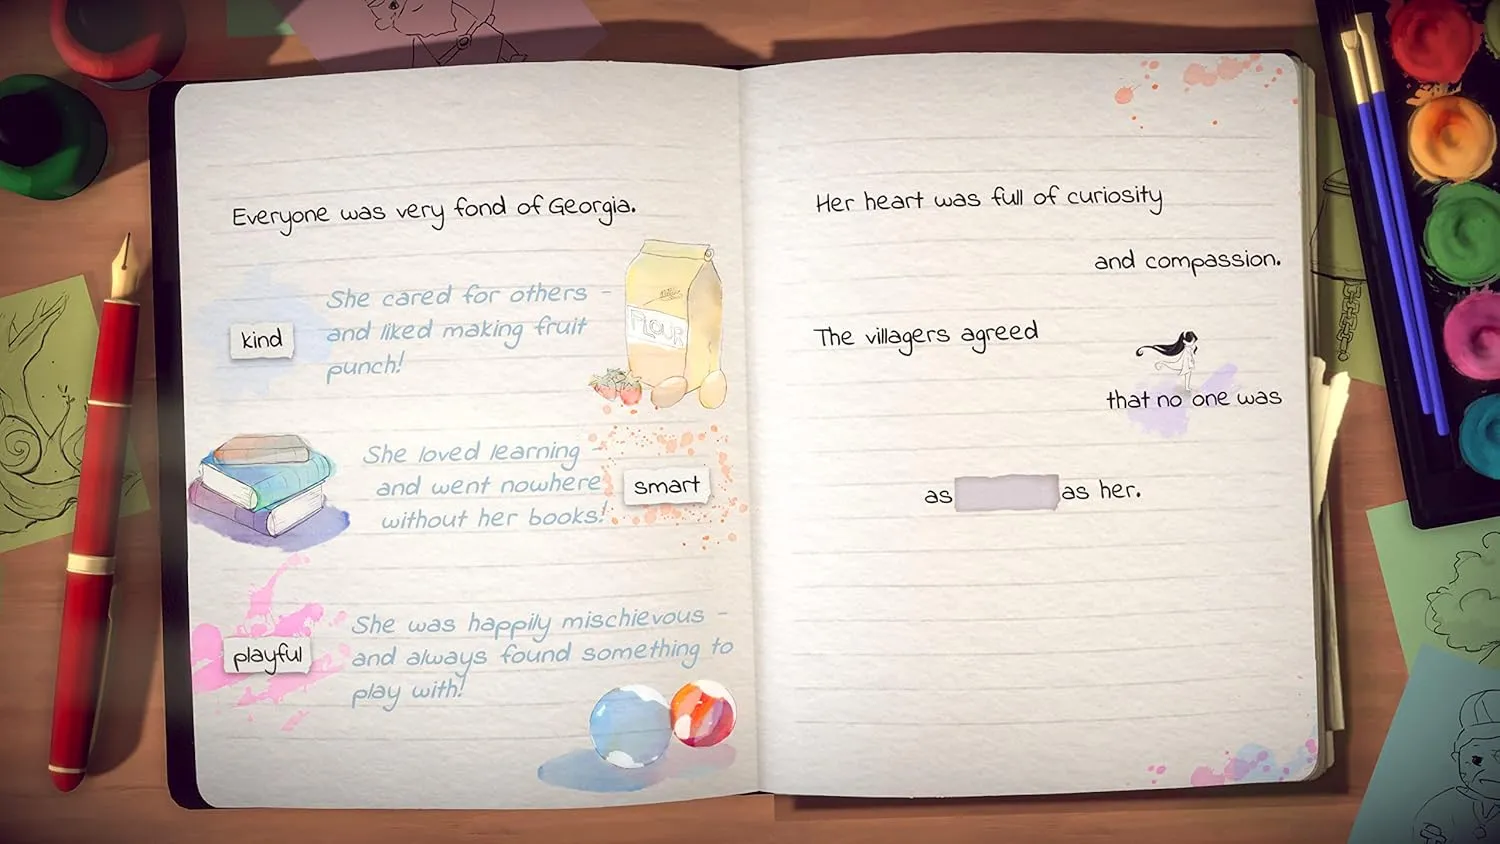 Everyone was very fond of Georgia.
kind
She cared for others -
and liked making fruit
punch!
FLOUR
She loved learning -
and went nowhere
without her books!
smart
playful
She was happily mischievous -
and always found something to
play with!
Her heart was full of curiosity
and compassion.
The villagers agreed
that no one was
as
as her.